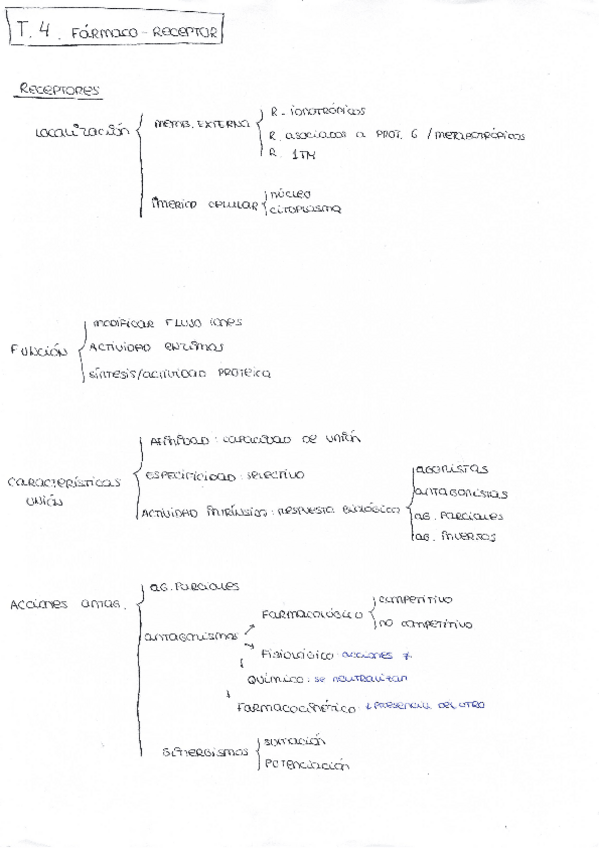 T. 4. FÁRMACO - RECEPTOR
RECEPTORES
LOCALIZACIÓN
MEMB. EXTERNA
R. IONOTRÓPICOS
R. ASOCIADOS A PROT. G / METABOTRÓPICOS
R. 1TM
INTERIOR CELULAR
NÚCLEO
CITOPLASMA
FUNCIÓN
MODIFICAR FLUJO IONES
ACTIVIDAD ENZIMAS
SÍNTESIS/ACTIVIDAD PROTEICA
CARACTERÍSTICAS UNIÓN
AFINIDAD: CAPACIDAD DE UNIÓN
ESPECIFICIDAD: SELECTIVO
ACTIVIDAD INTRÍNSECA: RESPUESTA BIOLÓGICA
AGONISTAS
ANTAGONISTAS
AG. PARCIALES
AG. INVERSOS
ACCIONES ANTAG.
AG. PARCIALES
ANTAGONISMOS
FARMACOLÓGICO
COMPETITIVO
NO COMPETITIVO
FISIOLÓGICO: ACCIONES ≠
QUÍMICO: SE NEUTRALIZAN
FARMACOCINÉTICO: ↓ PRESENCIA DEL OTRO
SINERGISMOS
SUMACIÓN
POTENCIACIÓN